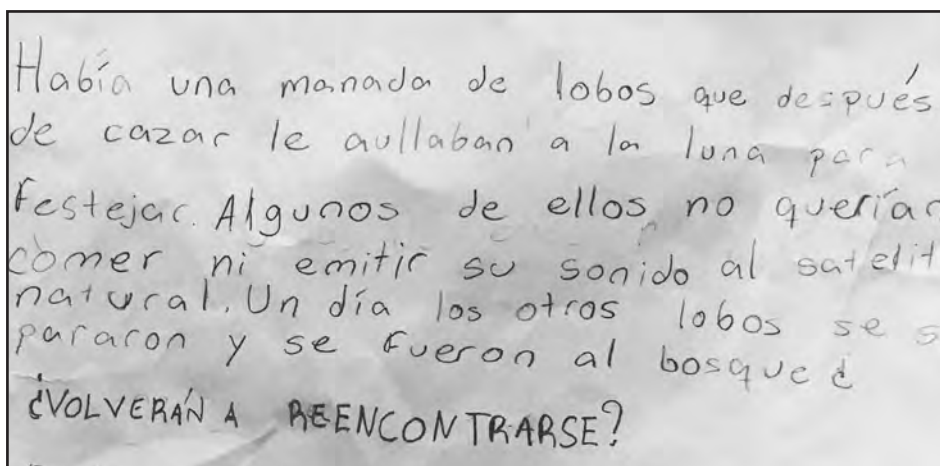 Había una manada de lobos que después
de cazar le aullaban a la luna para
festejar. Algunos de ellos no querían
comer ni emitir su sonido al satelit
natural. Un día los otros lobos se s
pararon y se fueron al bosque ¿
¿VOLVERÁN A REENCONTRARSE?